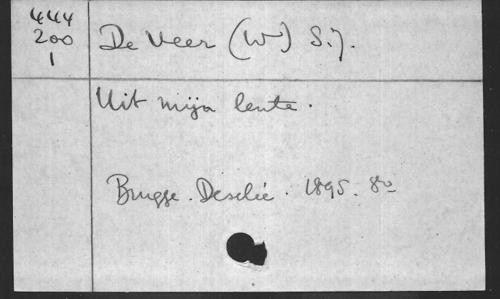 444
200
1
De Veer (W) S.J.
Uit mijn lente.
Brugge. Desclée. 1895. 8o